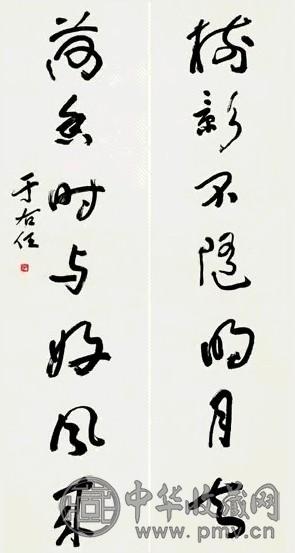 树影不随明月去
荷香时与好风来
于右任
中华收藏网
www.pmv.cn